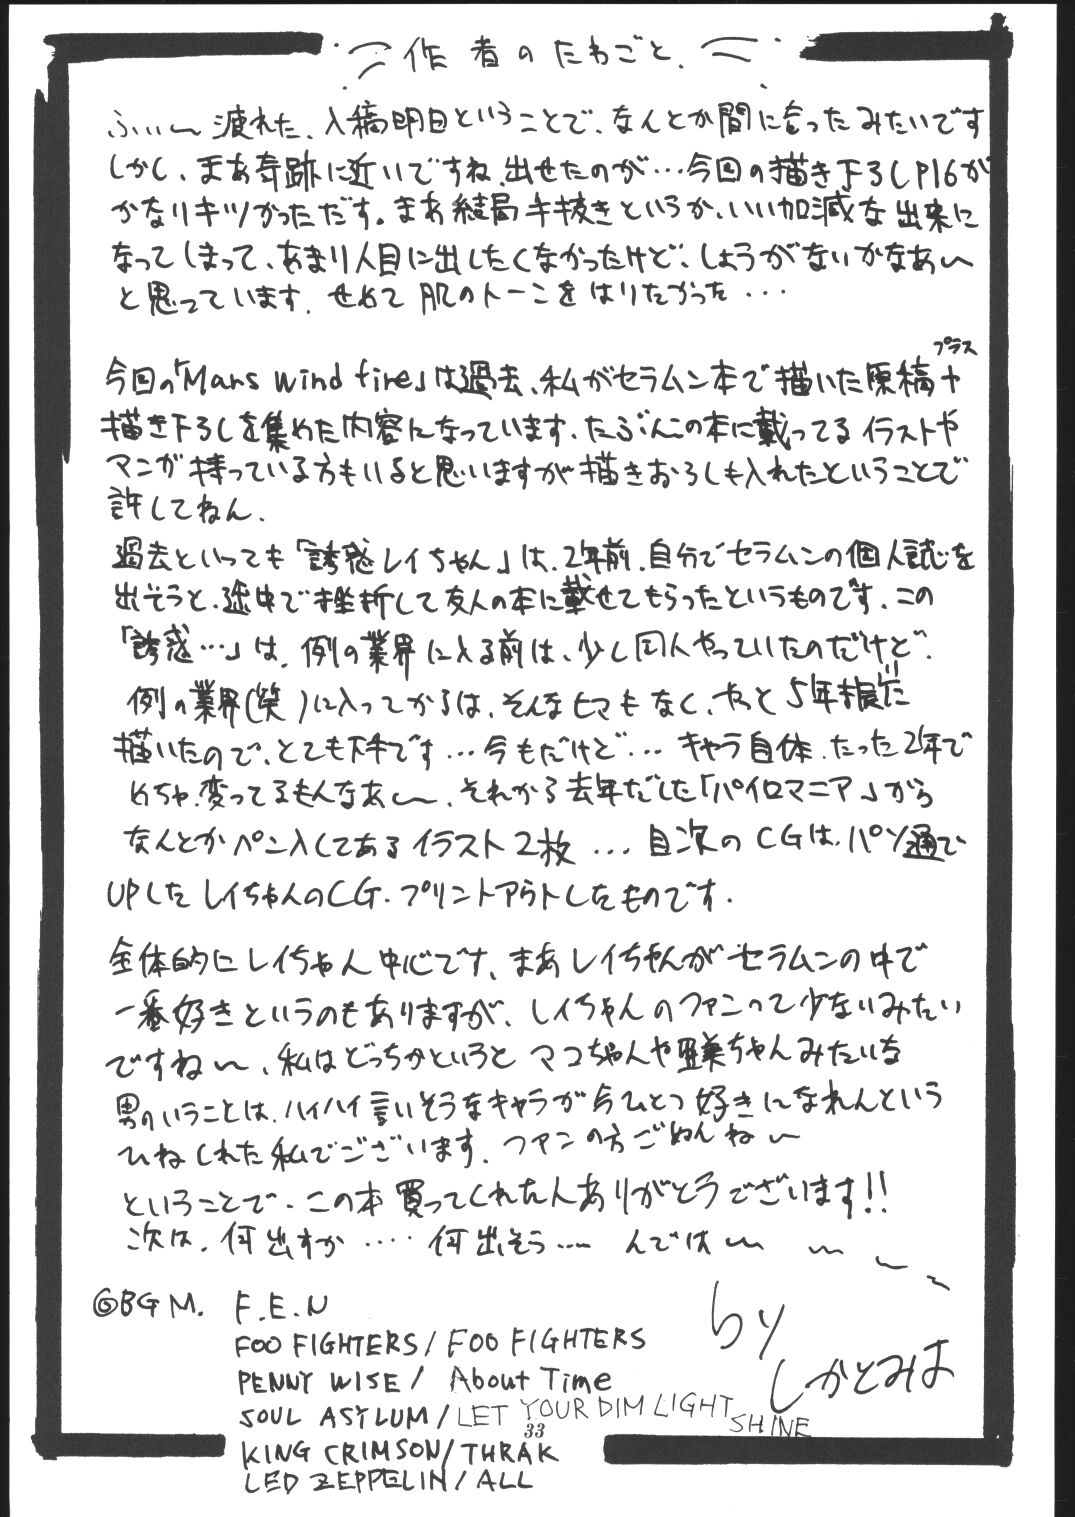 作者のたわごと.
ふぃぃ〜 疲れた、入稿明日ということで、なんとか間に合ったみたいです
しかし、まあ奇跡に近いですね、出せたのが…今回の描き下ろしP16が
かなりキツかっただす。まあ結局手抜きというか、いい加減な出来に
なってしまって、あまり人目に出したくなかったけど、しょうがないかなあ〜
と思っています. せめて肌のトーンをはりたかった・・・
プラス
今回の「Mars wind fire」は過去、私がセラムン本で描いた原稿+
描き下ろしを集めた内容になっています、たぶんこの本に載ってるイラストや
マンガ持っている方もいると思いますが描きおろしも入れたということで
許してねん.
過去といっても「誘惑レイちゃん」は、2年前、自分でセラムンの個人誌を
出そうと、途中で挫折して友人の本に載せてもらったというものです、この
「誘惑…」は、例の業界に入る前は、少し同人やっていたのだけど、
例の業界(笑)に入ってからは、そんなヒマもなく、やっと5年振りに
描いたので、とても下手です…今もだけど…キャラ自体、たった2年で
めちゃ、変ってるもんなあ〜、それから去年だした「パイロマニア」から
なんとかペン入してあるイラスト2枚 ...目次のCGは、パソ通で
UPしたレイちゃんのCG、プリントアウトしたものです.
全体的にレイちゃん中心です、まあレイちゃんがセラムンの中で
一番好きというのもありますが、レイちゃんのファンって少ないみたい
ですね〜、私はどっちかというとマコちゃんや亜美ちゃんみたいな
男のいうことは、ハイハイ言いそうなキャラが今ひとつ好きになれんという
ひねくれた私でございます. ファンの方ごめんね〜
ということで、この本買ってくれた人ありがとうでございます!!
次は、何出すか ‥‥ 何出そう …… んでは〜 〜 〜 〜
◎BGM. F.E.N
FOO FIGHTERS/FOO FIGHTERS
PENNY WISE/ About Time
SOUL ASYLUM/LET YOUR DIM LIGHT SHINE
KING CRIMSON/THRAK
LED ZEPPELIN/ALL
by
しかとみよ
33